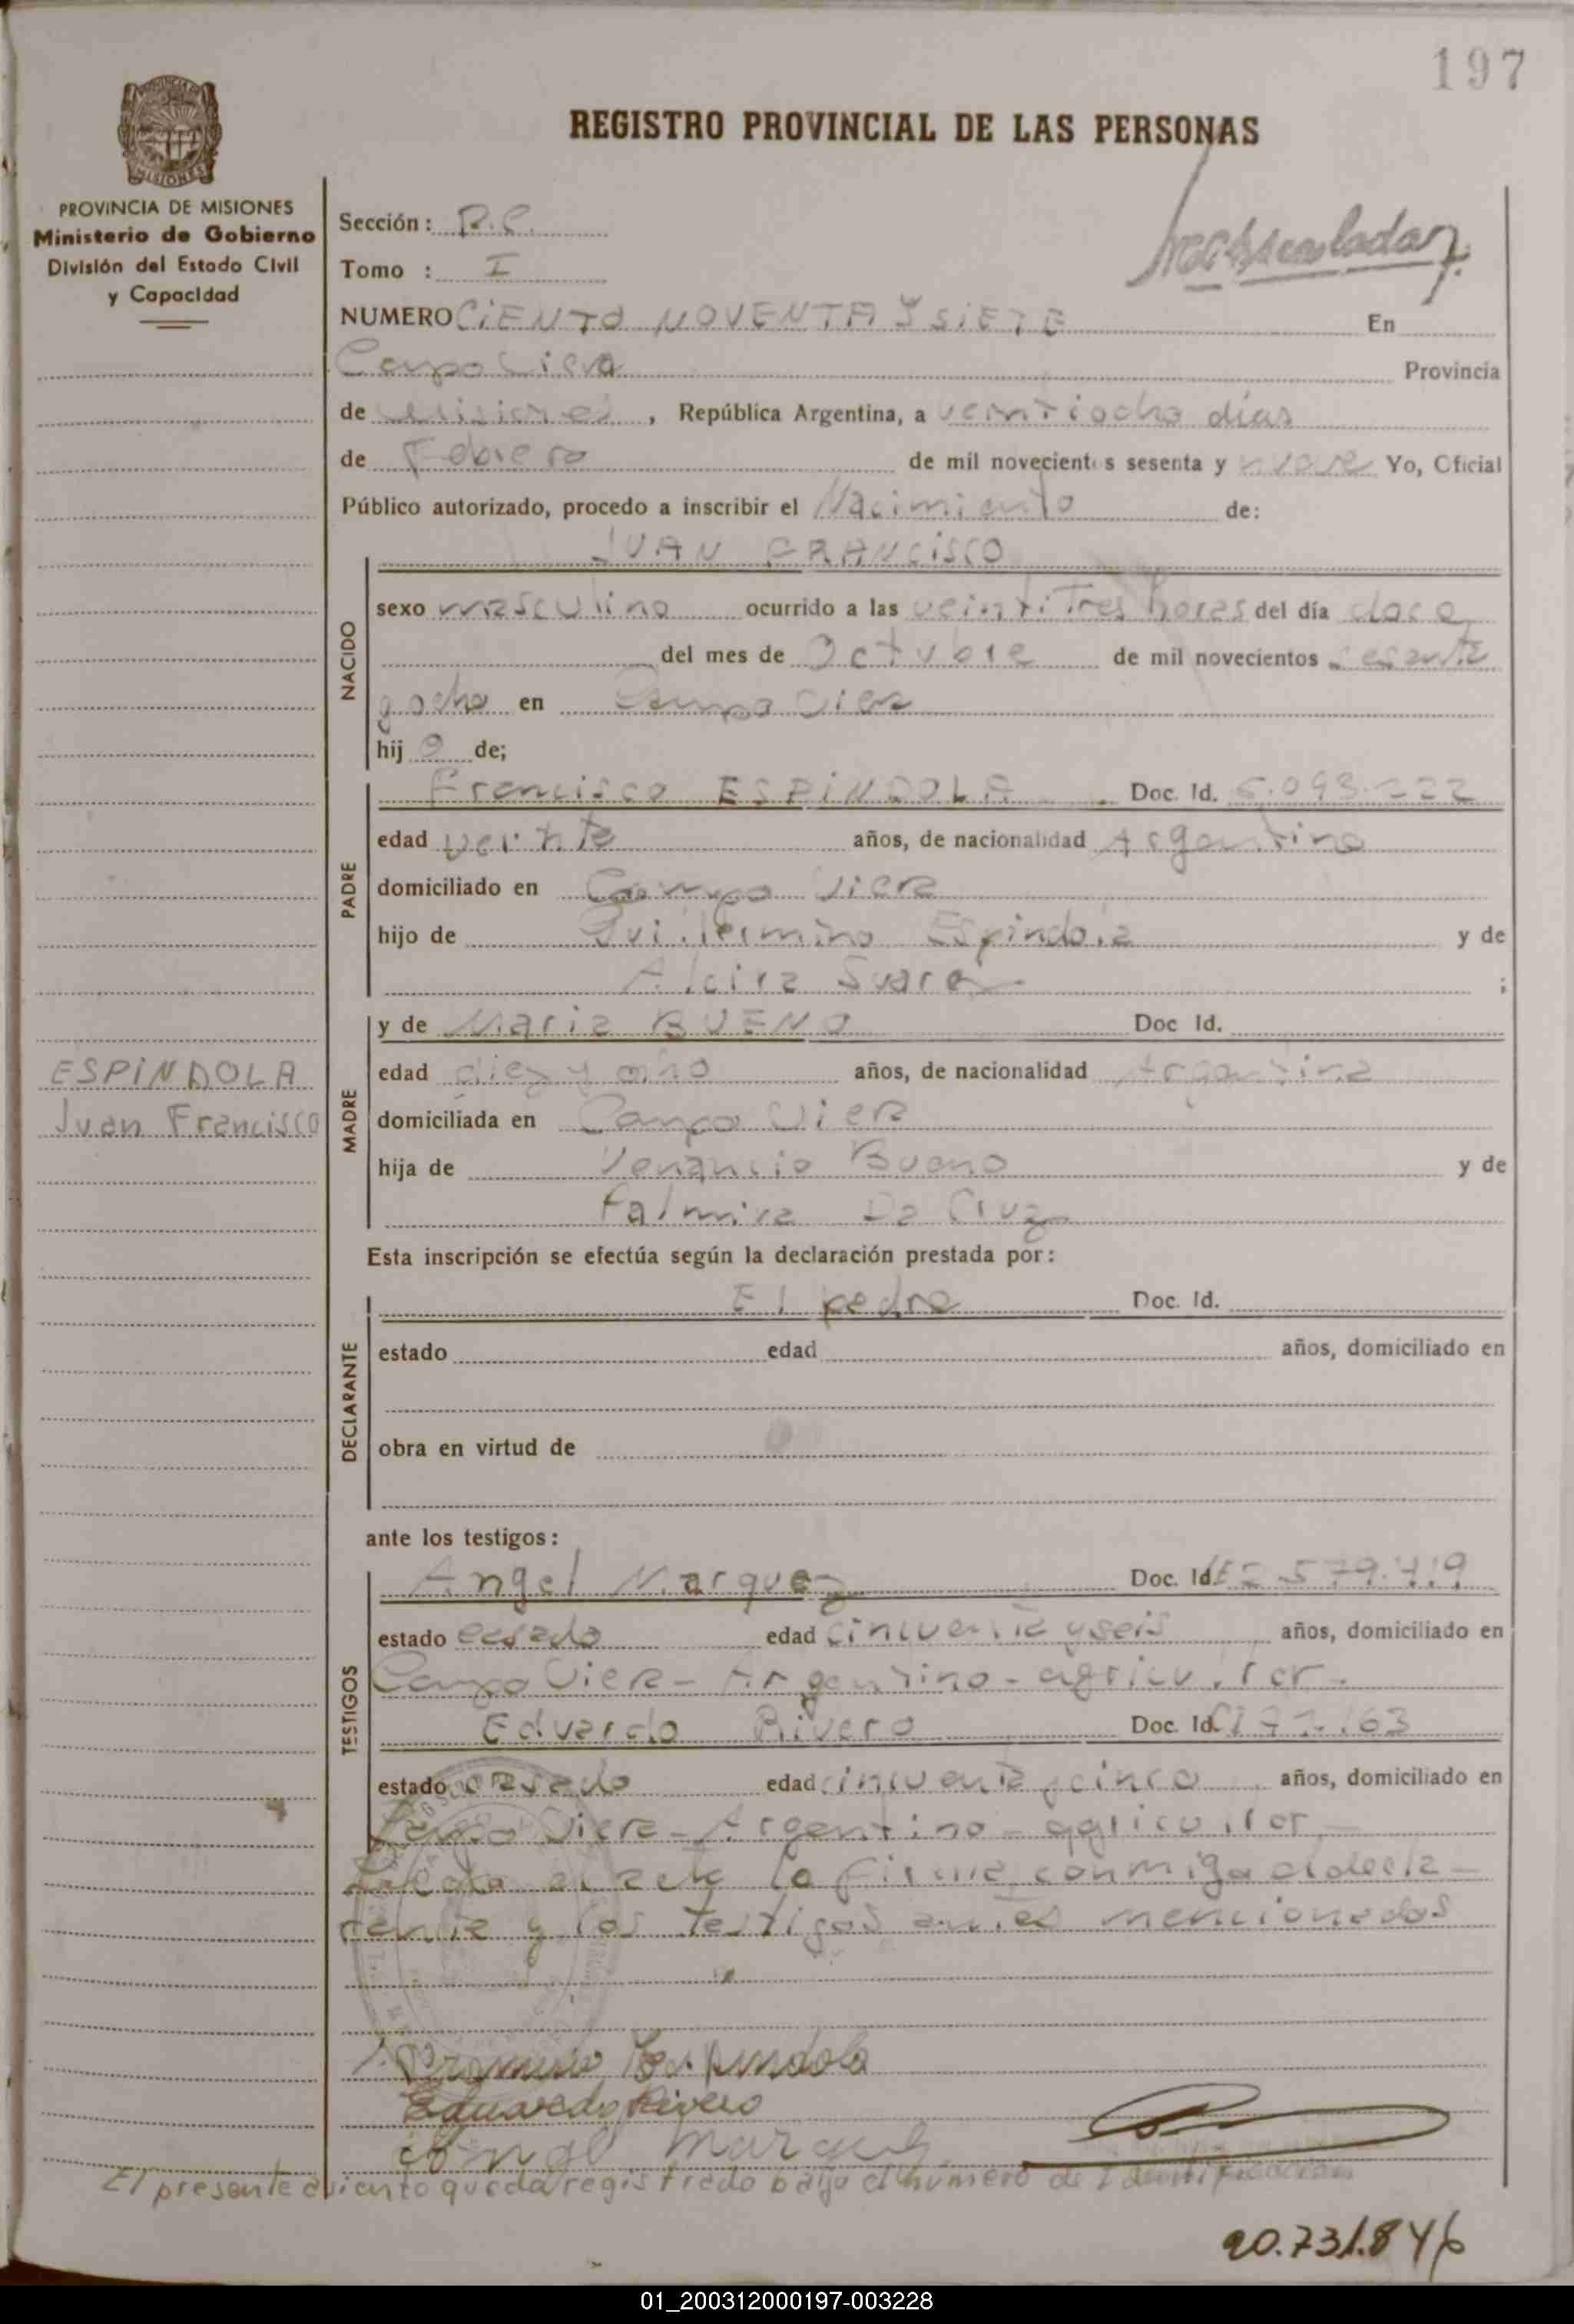 197
REGISTRO PROVINCIAL DE LAS PERSONAS
MISIONES
PROVINCIA DE MISIONES
Ministerio de Gobierno
División del Estado Civil
y Capacidad
Sección: R.C.
Tomo : I
NUMERO CIENTO NOVENTA Y SIETE En
Campo Viera Provincia
de Misiones, República Argentina, a veintiocho días
de Febrero de mil novecientos sesenta y nueve Yo, Oficial
Público autorizado, procedo a inscribir el Nacimiento de:
NACIDO
JUAN FRANCISCO
sexo masculino ocurrido a las veintitres horas del día doce
del mes de Octubre de mil novecientos sesenta
y ocho en Campo Viera
hijo de;
PADRE
Francisco ESPINDOLA Doc. Id.
edad veinte años, de nacionalidad Argentino
domiciliado en Campo Viera
hijo de Guillermino Espindola y de
Alcira Suarez ;
MADRE
y de Maria BUENO Doc Id.
edad años, de nacionalidad Argentina
domiciliada en Campo Viera
hija de Venancio Bueno y de
Palmira Da Cruz
ESPINDOLA
Juan Francisco
Esta inscripción se efectúa según la declaración prestada por:
DECLARANTE
El padre Doc. Id.
estado edad años, domiciliado en
obra en virtud de
ante los testigos:
TESTIGOS
Angel Marquez Doc. Id.
estado casado edad cincuenta y seis años, domiciliado en
Campo Viera - Argentino - agricultor -
Eduardo Rivero Doc. Id.
estado casado edad cincuenta y cinco años, domiciliado en
Campo Viera - Argentino - agricultor -
el acta la firma conmigo el decla-
rante y los testigos antes mencionados
Francisco Espindola
Eduardo Rivero
Angel Marquez
El presente asiento queda registrado bajo el número de Identificacion
20.731.846
01_200312000197-003228